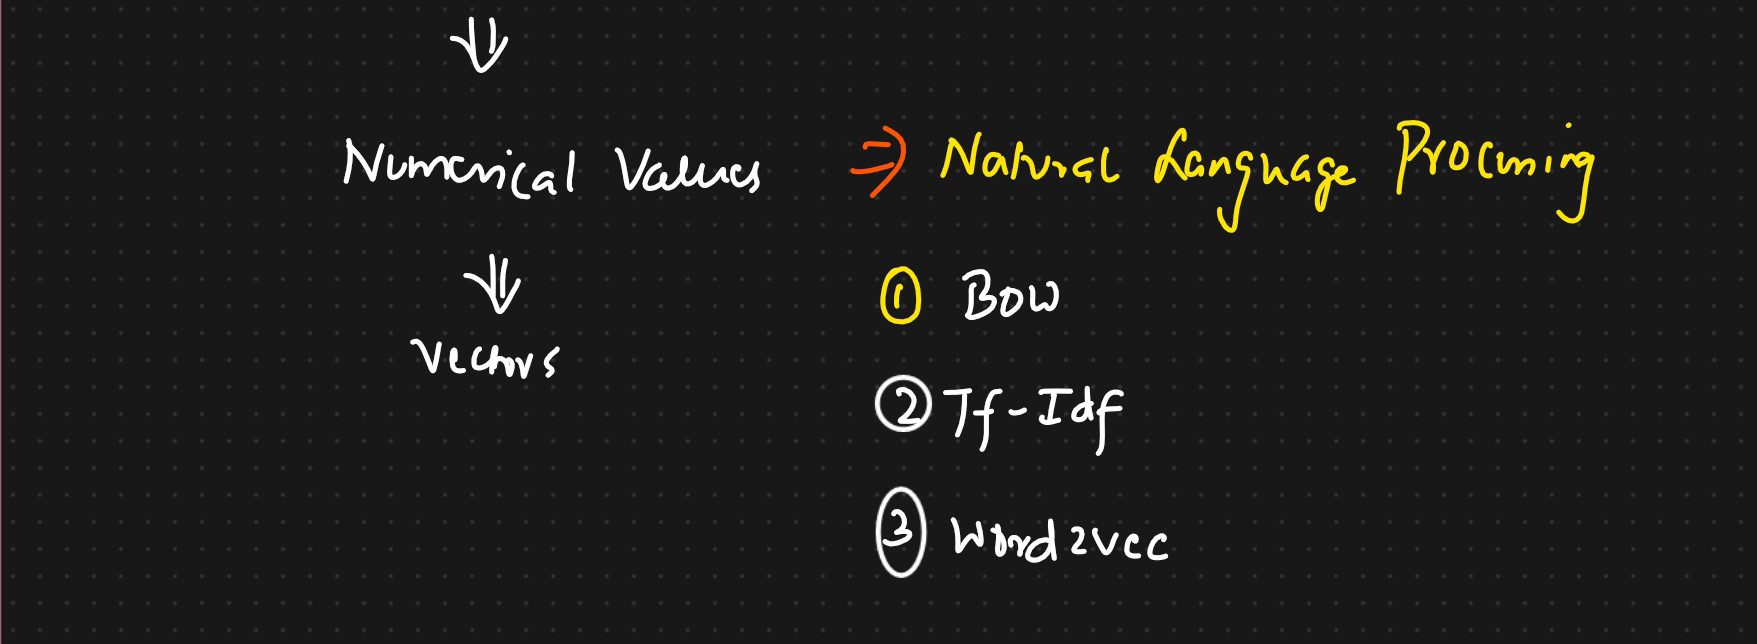 ⇓
Numerical Values ⇒ Natural Language Processing
⇓
① BOW
Vectors
② Tf-Idf
③ Word2vec